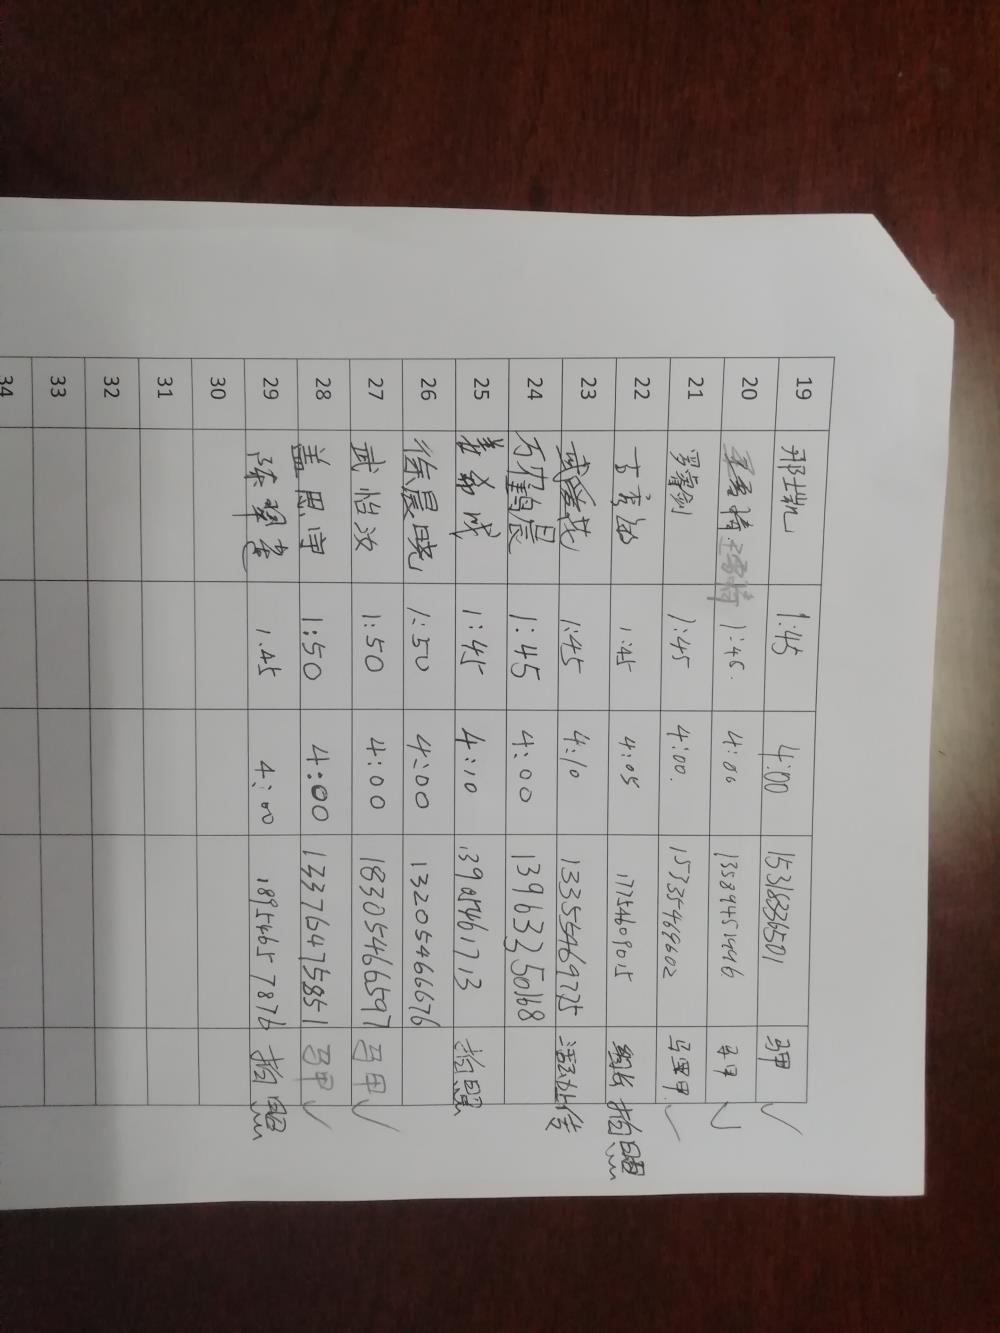 19 邢凯 1:45 4:00 15318336501 马甲 ✓
20 1:46. 4:06 13589451446 马甲 ✓
21 罗睿剑 1:45 4:00. 15335469602 马甲 ✓
22 1:45 4:05 17754609015 组长 拍照
23 武爱花 1:45 4:10 13355469775 活动上传
24 万鹤晨 1:45 4:00 13963350168
25 1:45 4:10 13905461713 拍照
26 徐晨晓 1:50 4:00 13205466676
27 武怡汝 1:50 4:00 18305466597 马甲 ✓
28 盖思宇 1:50 4:00 13376475851 马甲 ✓
29 1:45 4:00 18954657876 拍照
30
31
32
33
34